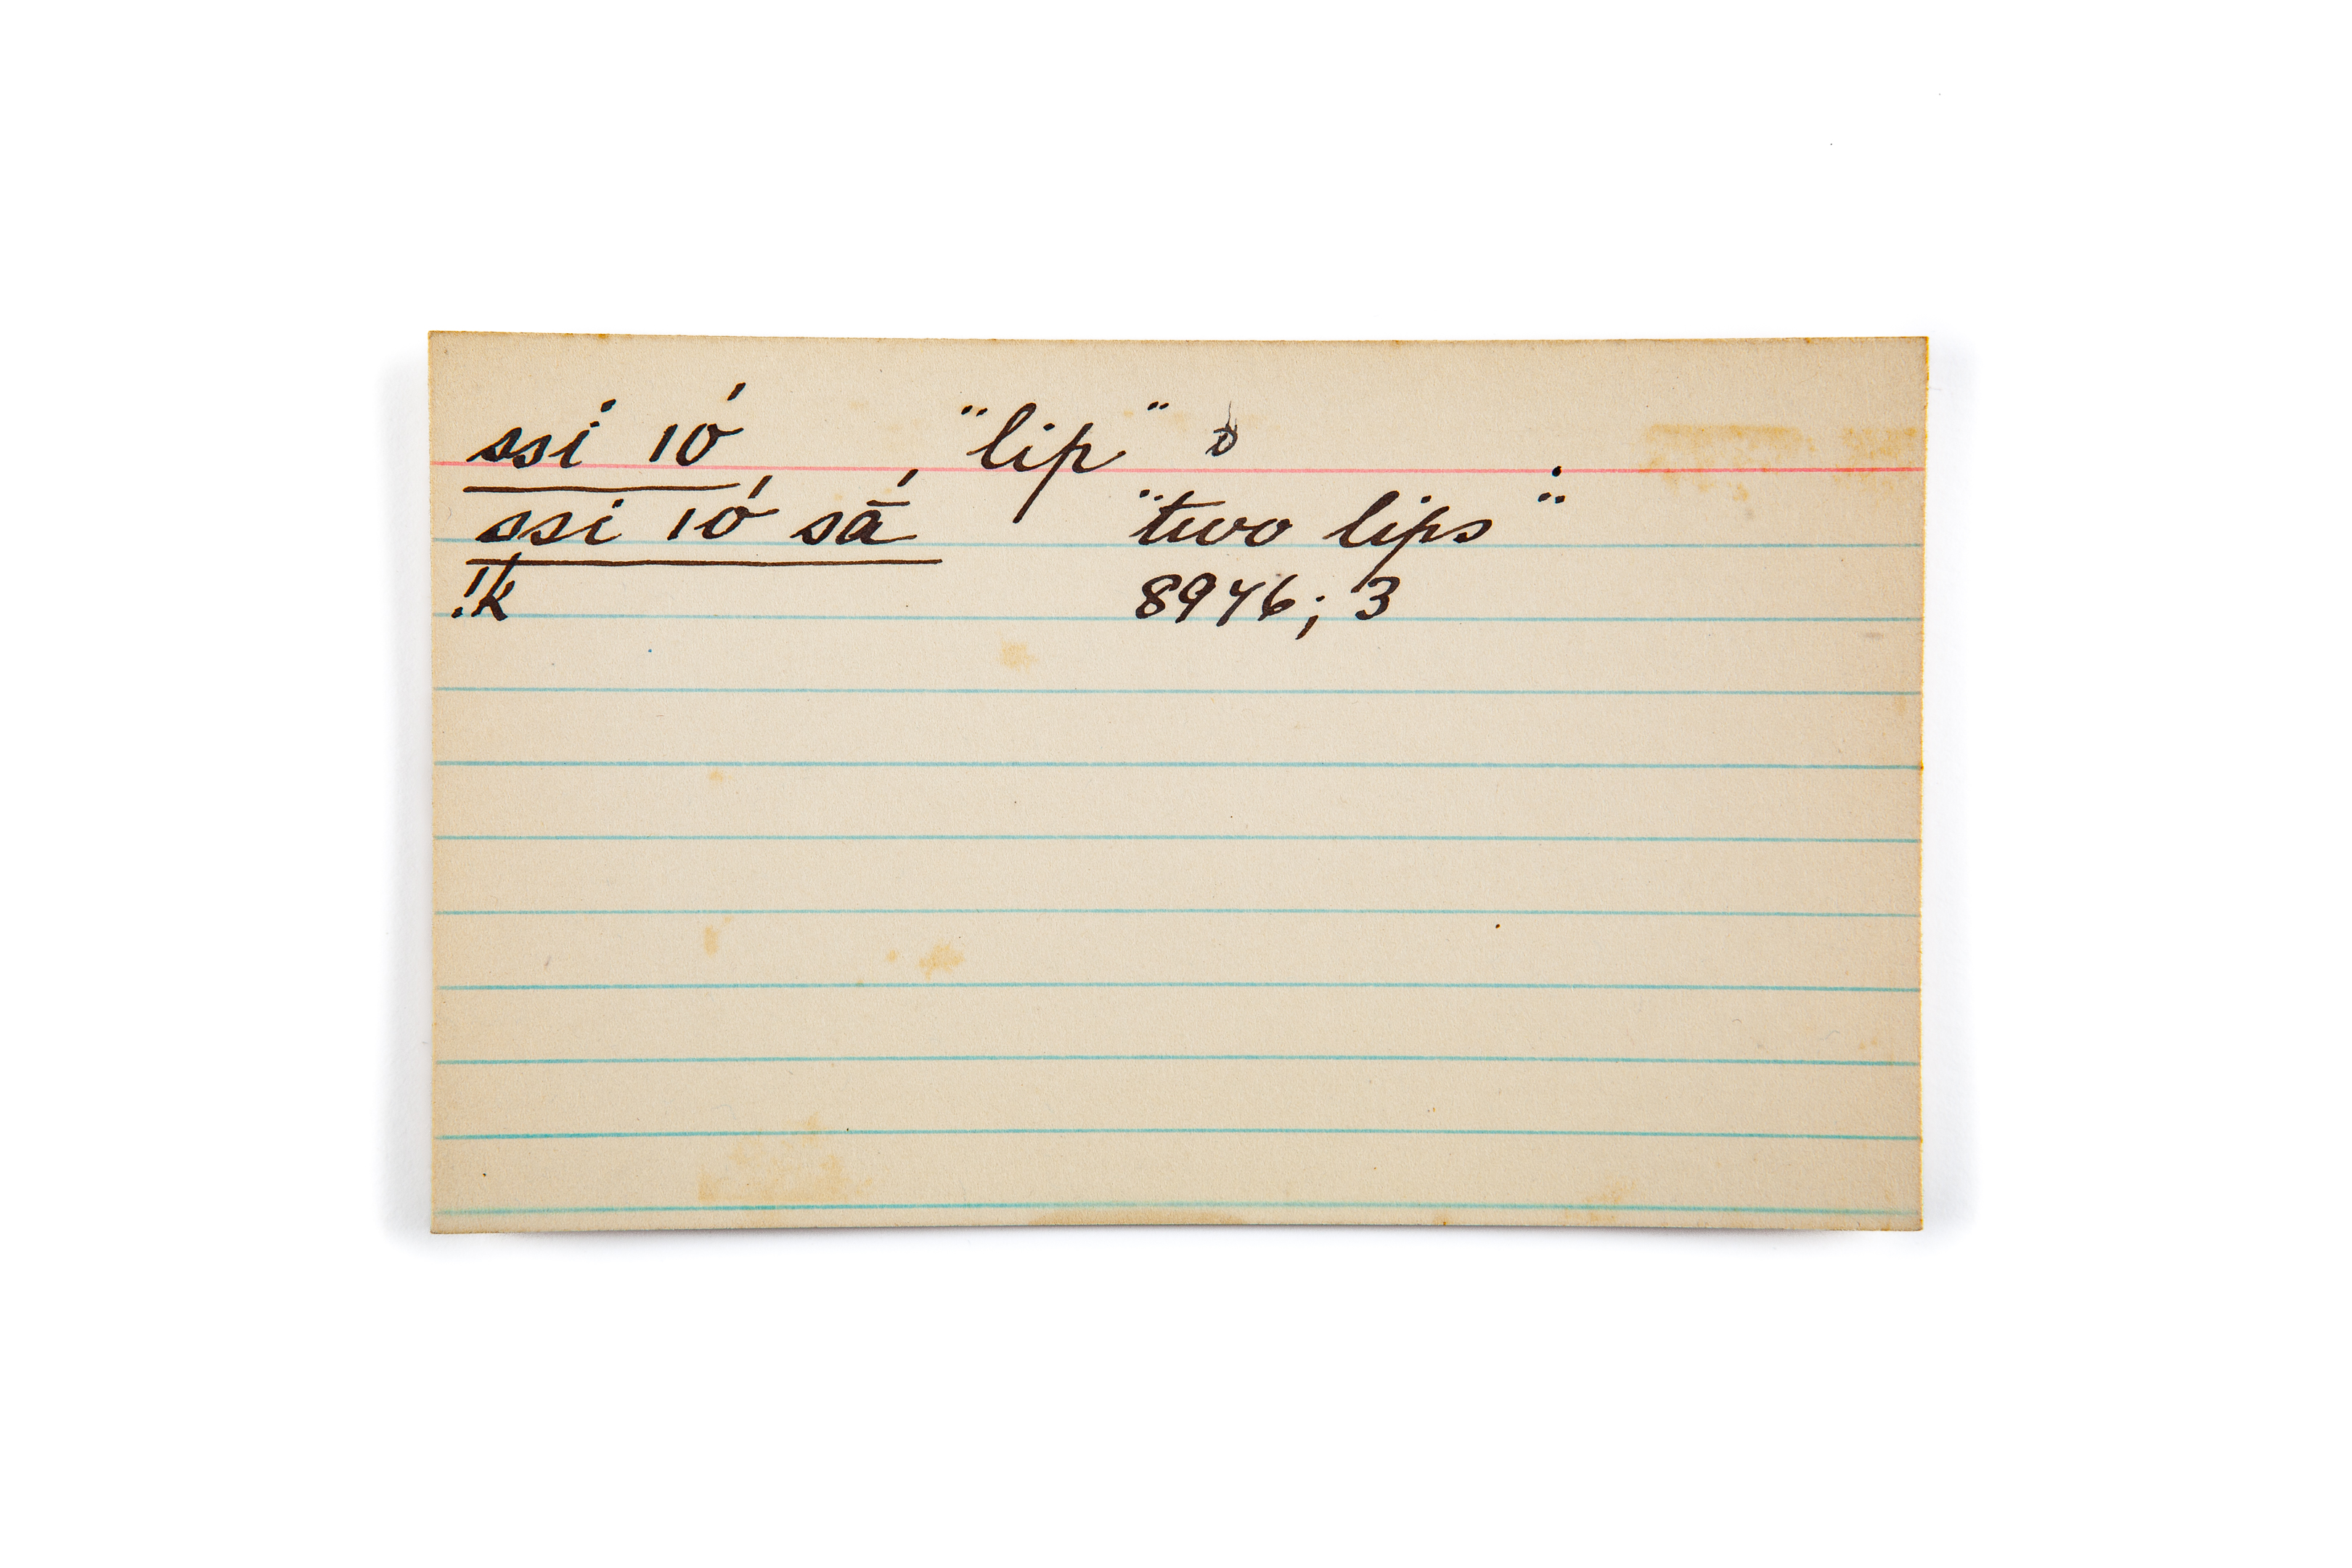 ssi ıó, "lip"
ssi ıó sā́ "two lips"
!k 8946; 3